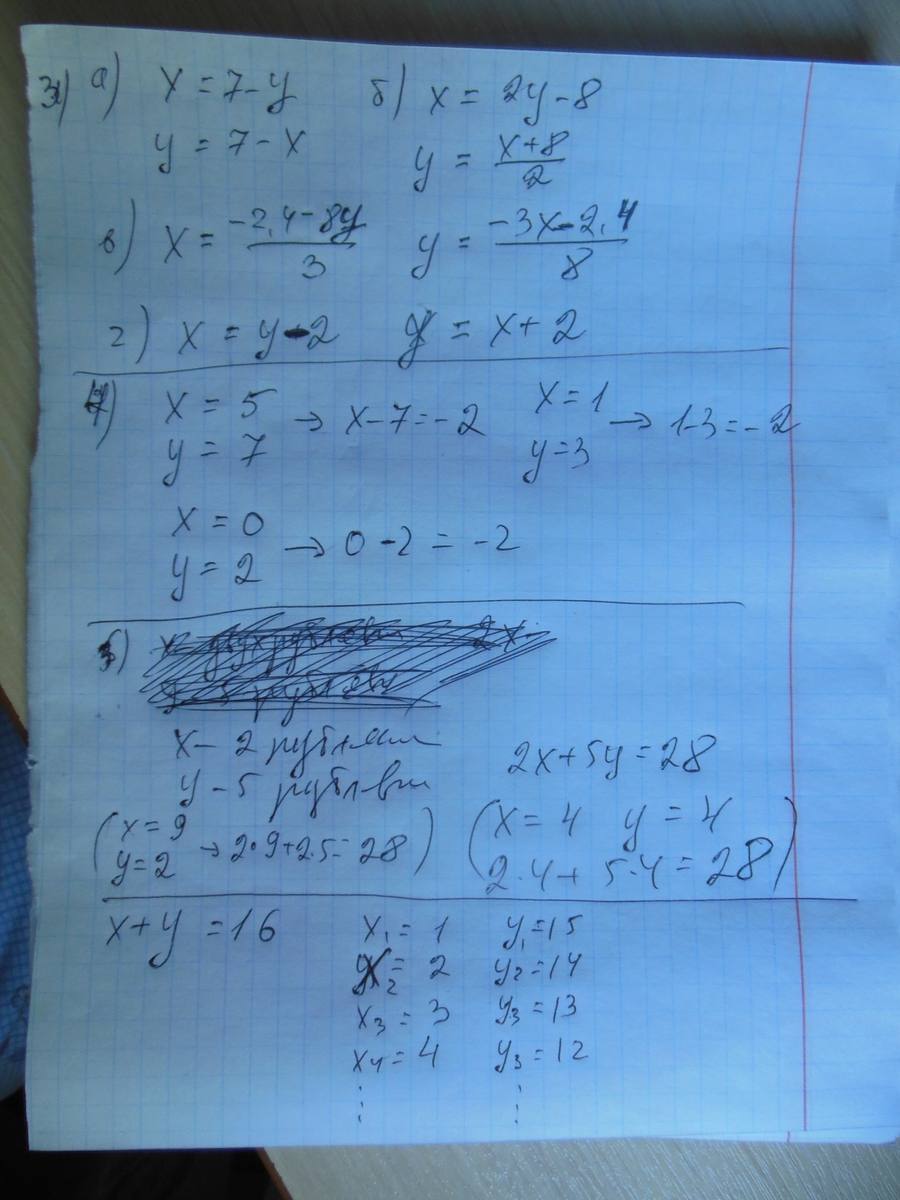 3) а) x = 7 - y б) x = 2y - 8
y = 7 - x y = \frac{x+8}{2}
в) x = \frac{-2,4-8y}{3} y = \frac{-3x-2,4}{8}
г) x = y - 2 y = x + 2
4) x = 5 y = 7 → x - 7 = -2 x = 1 y = 3 → 1-3 = -2
x = 0 y = 2 → 0 - 2 = -2
5)
x - 2 рублями
y - 5 рублями 2x + 5y = 28
(x = 9 y = 2 → 2·9+2·5 = 28) (x = 4 y = 4
2·4 + 5·4 = 28)
x + y = 16 x₁ = 1 y₁ = 15
x₂ = 2 y₂ = 14
x₃ = 3 y₃ = 13
x₄ = 4 y₃ = 12
⋮ ⋮